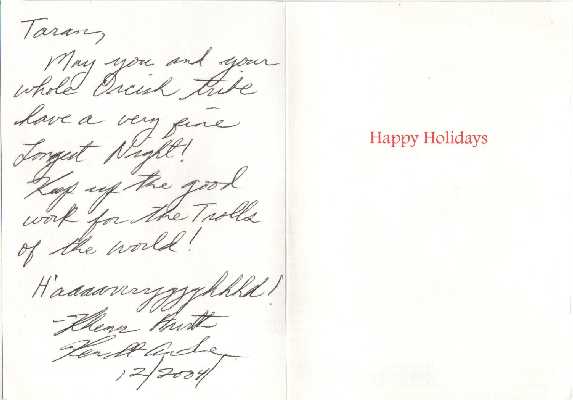 Taran,
May you and your
whole Orcish tribe
have a very fine
Longest Night!
Keep up the good
work for the Trolls
of the world!
H'aaaavrrrygggghhhhd!
12/2004
Happy Holidays